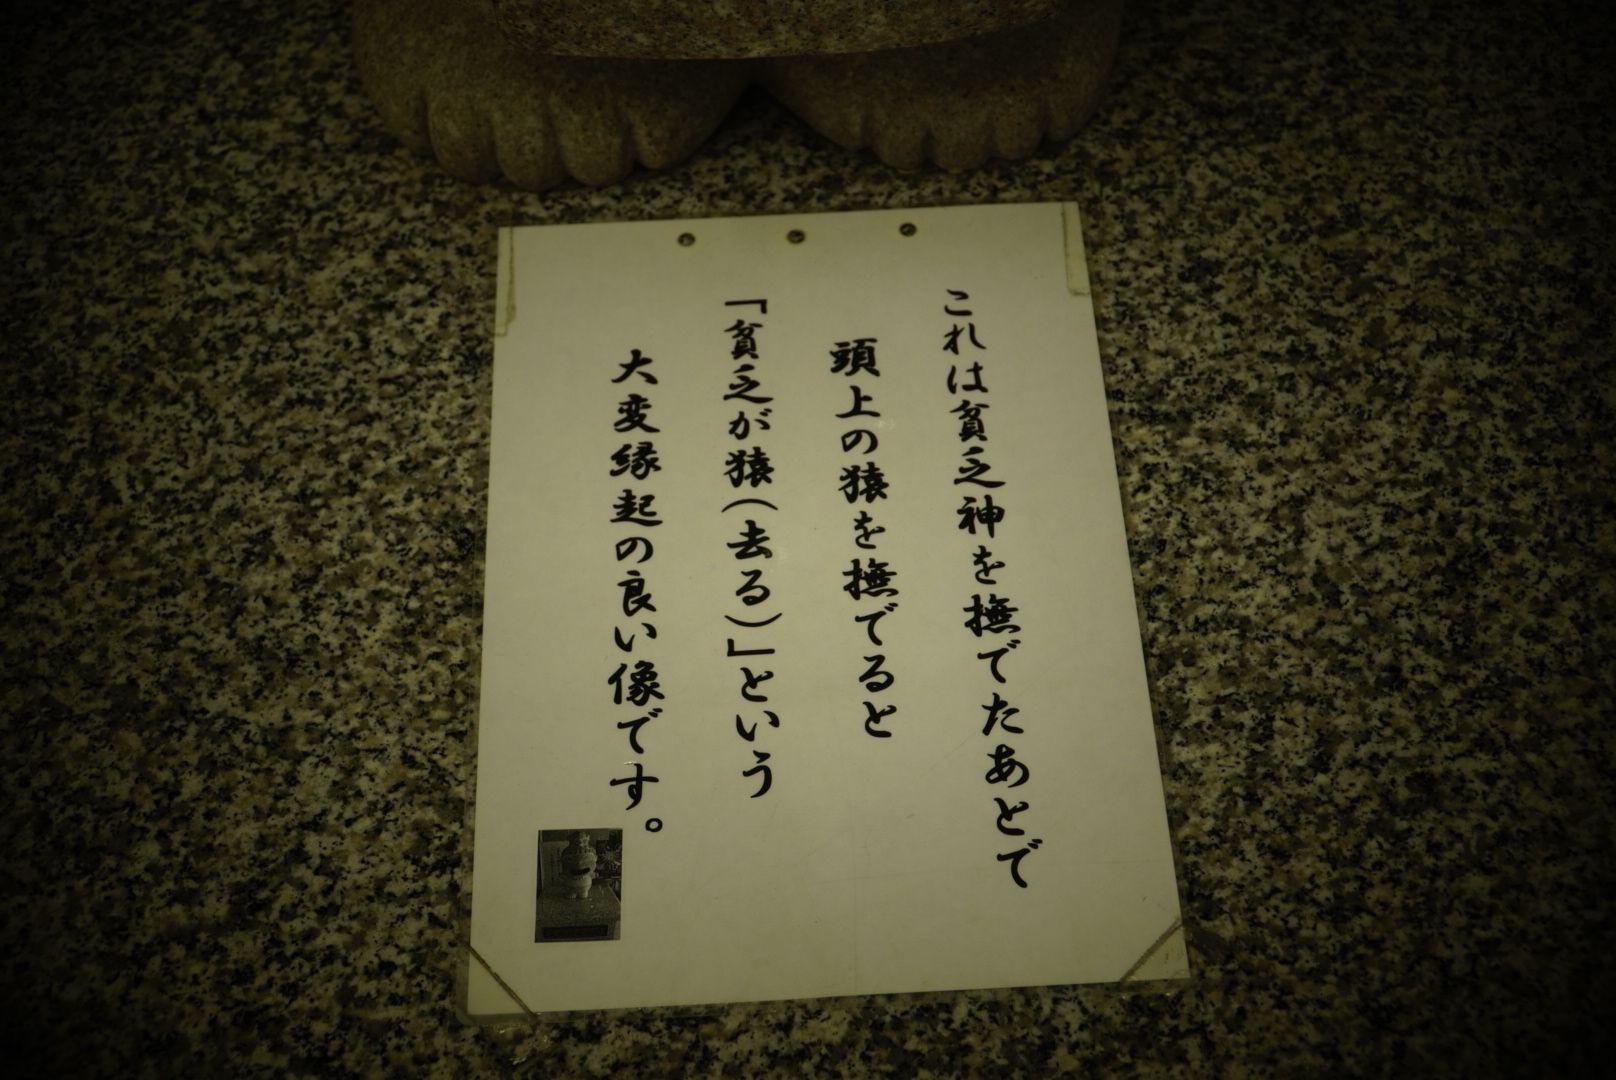 これは貧乏神を撫でたあとで
頭上の猿を撫でると
「貧乏が猿（去る）」という
大変縁起の良い像です。